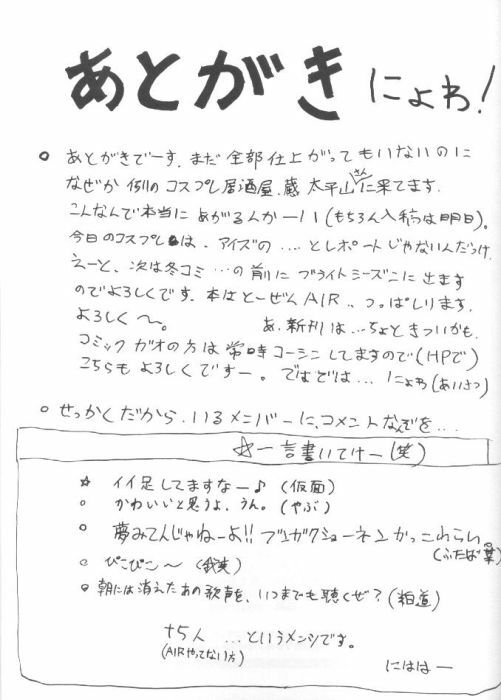 あとがき にょわ!
○ あとがきでーす。まだ全部仕上がってもいないのに
なぜか例のコスプレ居酒屋、蔵太平山さんに来てます。
こんなんで本当にあがるんかーい(もちろん入稿は明日)。
今日のコスプレは、アイズの…とレポートじゃないんだっけ。
えーと、次は冬コミ…の前にブライトシーズンに出ます
のでよろしくです。本はとーぜんAIR、つっぱしります。
よろしく〜。 あ、新刊は…ちょときついかも。
コミックガオの方は常時コーシンしてますので(HPで)
こちらもよろしくですー。ではでは… にょわ(あいさつ)
○ せっかくだから、いるメンバーに、コメントなんぞを…
☆一言書いてけー(笑)
☆ イイ足してますなー♪(仮面)
○ かわいいと思うよ、うん。(やぶ)
○ 夢みてんじゃねーよ!!
(ふたば葉)
○ ぴこぴこ〜
○ 朝には消えたあの歌声を、いつまでも聴くぜ?
+5人 …というメンツです。
(AIRやってない方)
にははー